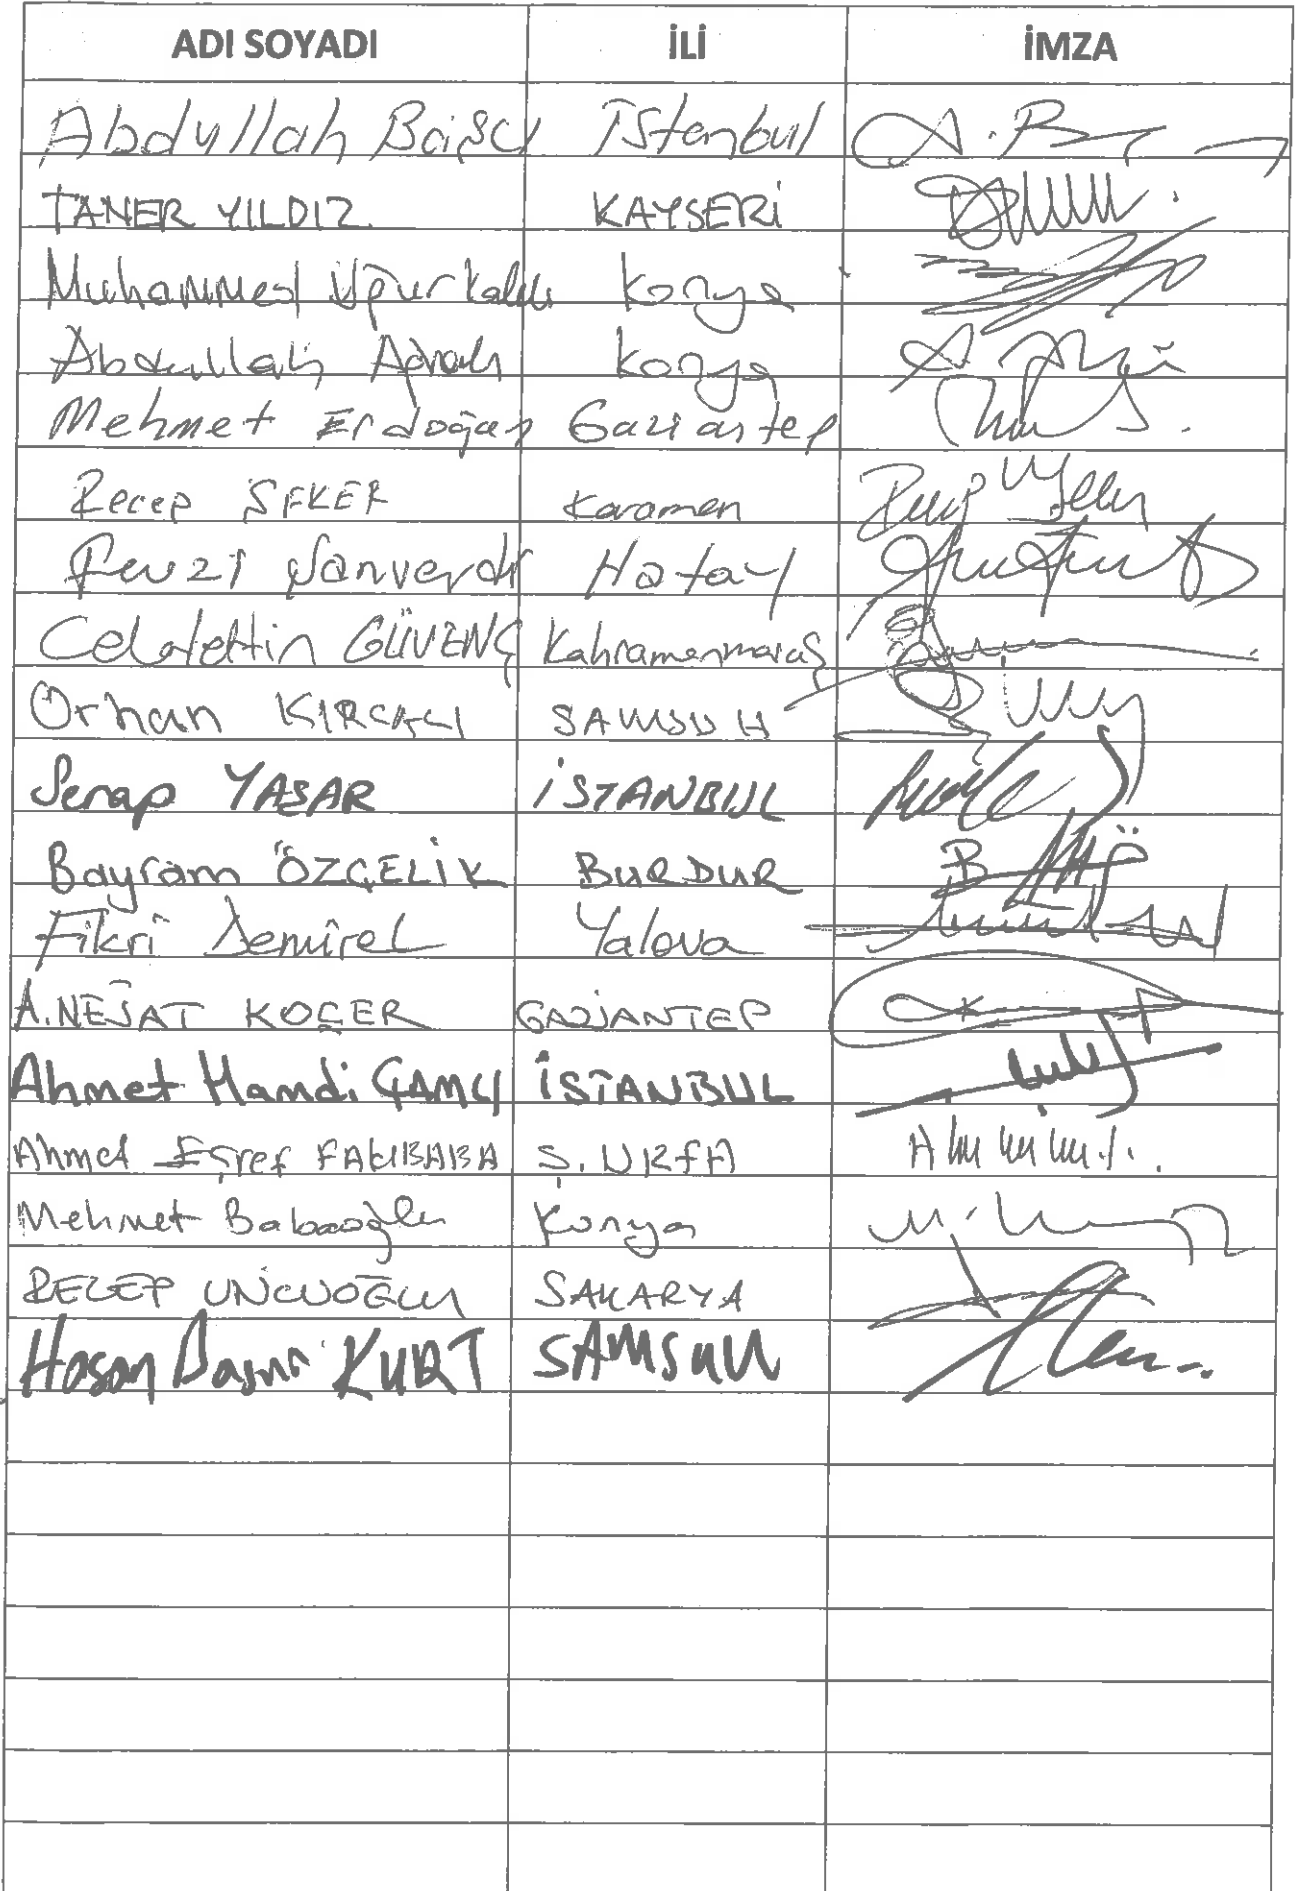 ADI SOYADI İLİ İMZA
Abdullah Başcı İstanbul A. B
TANER YILDIZ KAYSERİ
Muhammed Uğur Kaleli Konya
Abdullah Ağralı Konya
Mehmet Erdoğan Gaziantep
Recep ŞEKER Karaman
Fevzi Şanverdi Hatay
Celalettin GÜVENÇ Kahramanmaraş
Orhan KIRCALI SAMSUN
Serap YAŞAR İSTANBUL
Bayram ÖZÇELİK BURDUR
Fikri Demirel Yalova
A. NEJAT KOÇER GAZİANTEP
Ahmet Hamdi ÇAMLI İSTANBUL
Ahmet Eşref FAKIBABA Ş. URFA
Mehmet Babaoğlu Konya
RECEP UNCUOĞLU SAKARYA
Hasan Basri KURT SAMSUN